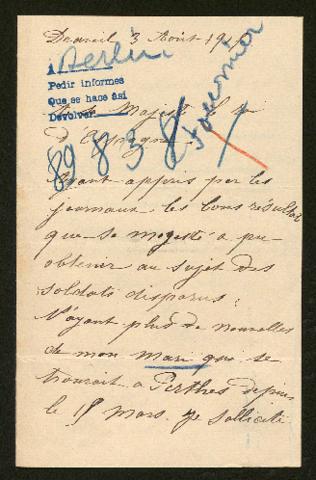 3 Août
Berlin
Fournier
A
Pedir informes
Que se hace así
Devolver
A sa Majesté le roi
d'Espagne
89838/
Ayant appris par les
journaux les bons résultat
que sa majesté a pu
obtenir au sujet des
soldats disparus;
N'ayant plus de nouvelles
de mon mari qui se
trouvait a Perthes depuis
le 15 mars. Je sollicite